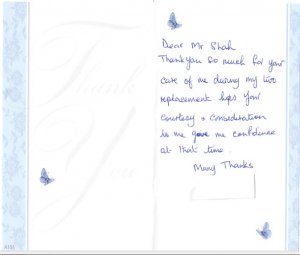 Thank
You
Dear Mr Shah
Thankyou so much for your
care of me during my two
replacement hips Your
courtesy & consideration
to me gave me confidence
at that time.
Many Thanks